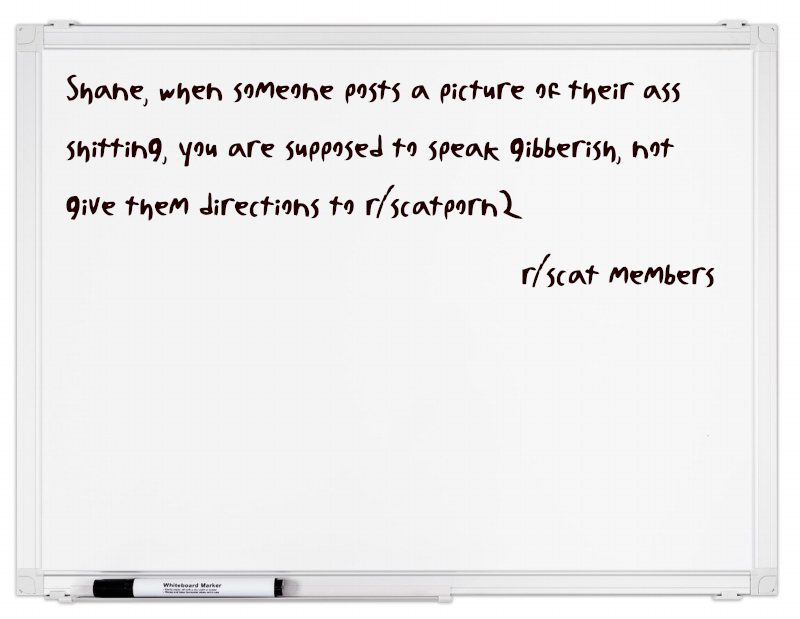 Shane, when someone posts a picture of their ass
shitting, you are supposed to speak gibberish, not
give them directions to r/scatporn2
r/scat members
Whiteboard Marker